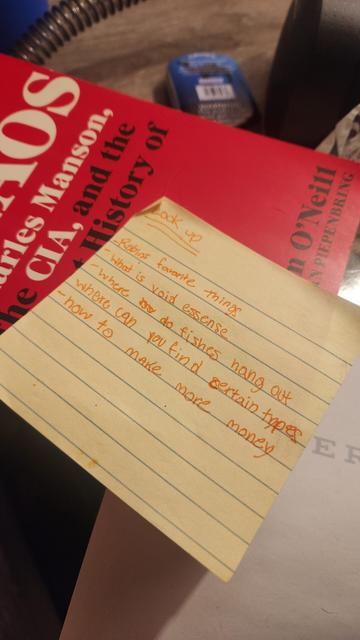 AOS
arles Manson,
he CIA, and the
t History of
n O'Neill
N PIEPENBRING
Look up
-Robins favorite things
-What is void essense
-Where do fishes hang out
-where can you find certain types
-how to make more money
ER